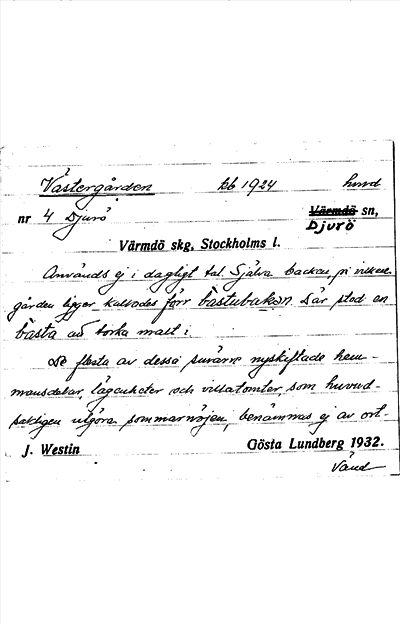 Västergården kb 1924 huvud
nr 4 Djurö Värmdö sn,
Djurö
Värmdö skg, Stockholms l.
Används ej i dagligt tal. Själva backen, på vilken
gården ligger kallades förr bastubakan. Där stod en
basta att torka malt i.
De flesta av dessa nyskiftade hem-
mansdelar, lägenheter och villatomter, som huvud-
sakligen utgöra sommarnöjen, benämnas ej av ort-
J. Westin Gösta Lundberg 1932.
Vänd